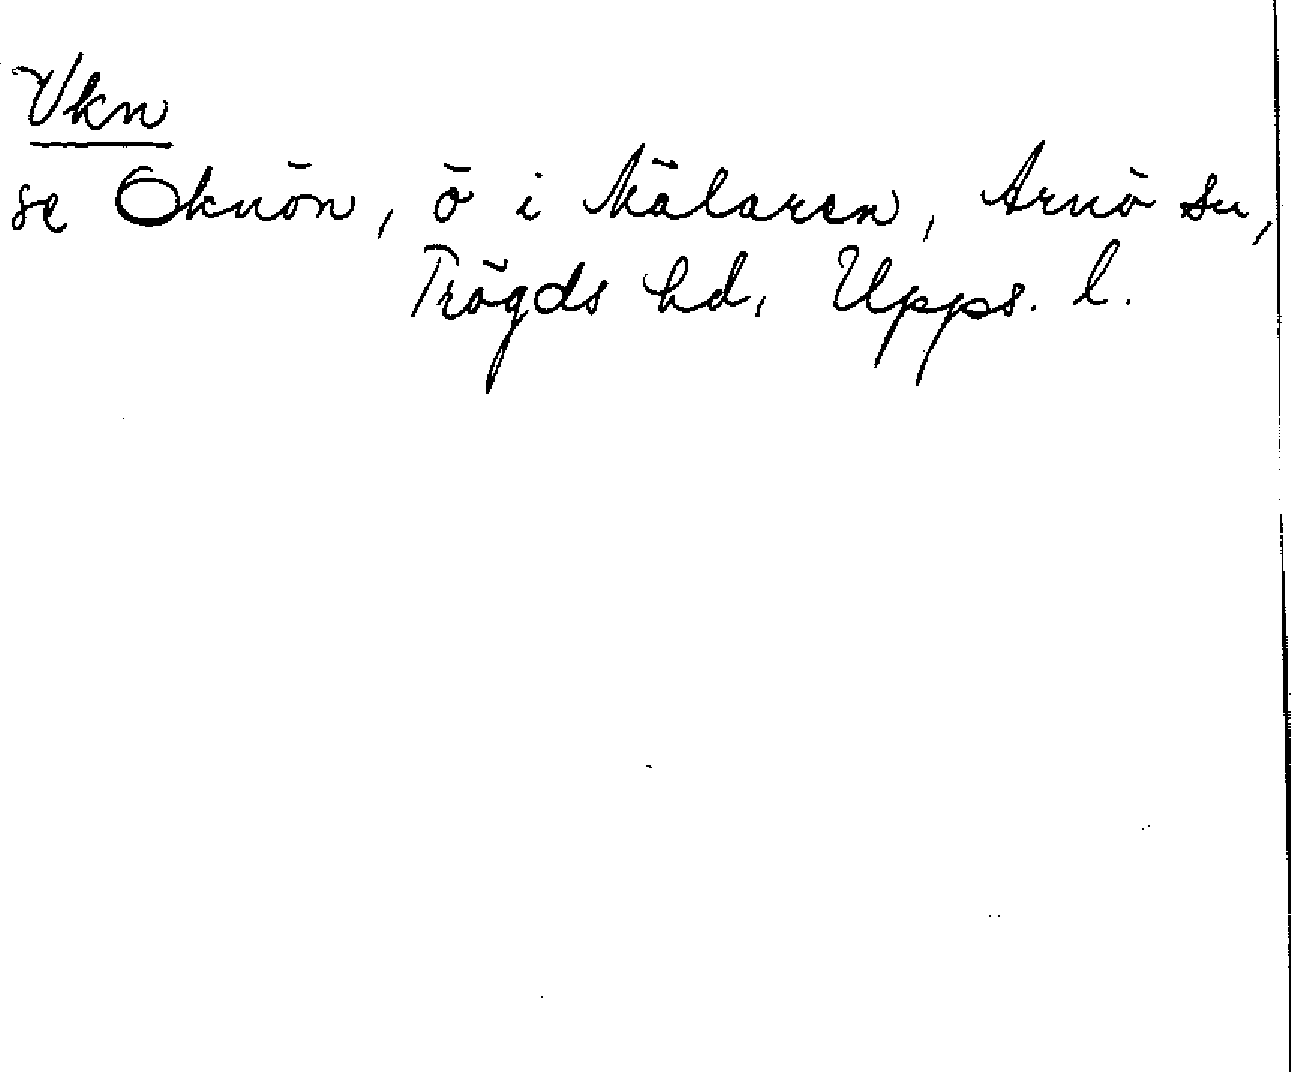 Vkn
se Oknön, ö i Mälaren, Arnö sn,
Trögds hd, Upps. l.